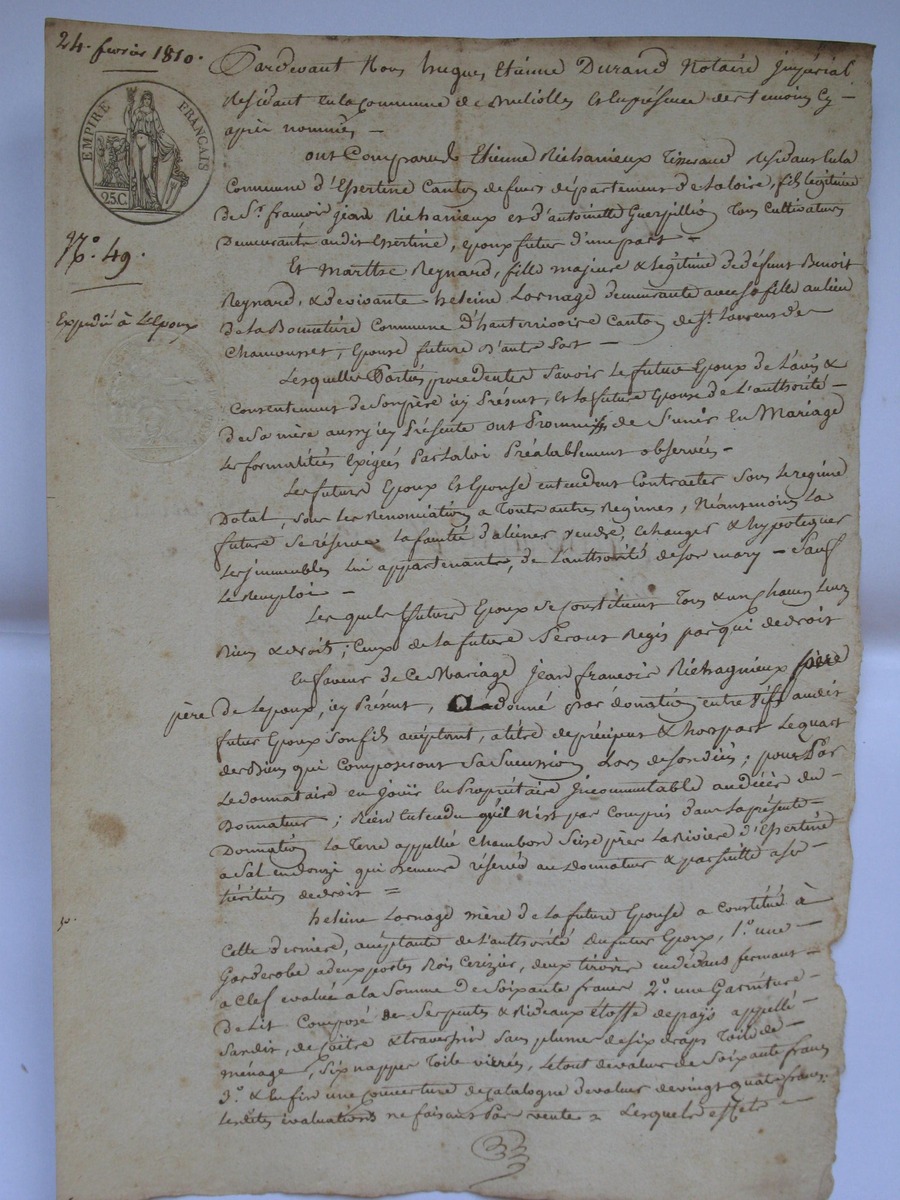 24. fevrier 1810.
EMPIRE FRANÇAIS
25.C
N.° 49.
Expedié à L'Epoux
Pardevant Nous hugues Etienne Durand Notaire Imperial
residant en la Commune de et en présence des temoins Cy
après nommés
ont Comparu Etienne Richanieux residant en la
Commune d'Essertine Canton de feurs département de la loire, fils legitime
de Sr. françois jean Richanieux et d'antoinette Guerpillion tous Cultivateurs
Demeurants audit Essertine, époux futur d'une part
Et Marthe Reynard, fille majeure & légitime de défunt Benoit
Reynard, & de vivante heleine Lornage demeurante avec sa fille au lieu
de la Bonnetiére Commune d'hauterivoire Canton de St. Laurens de
Chamousset, Epouse future d'autre Part
Lesquelles Parties procedentes Savoir le future Epoux de L'avis &
Consentement de son père icy Présent, et la future Epouse de L'authorité
de Sa mère aussy icy Présente ont Promis de S'unir En Mariage
les formalités Exigées Par la loi Préalablement observées
Les future Epoux et Epouse entendent Contracter Sous le regime
Dotal, sous les Renonciation a Tout autres Régimes, Néantmoins la
future Se réserve la faculté d'aliener vendre, échanger & hypotequer
les immeubles lui appartenants, de L'authorité de son mary - Sauf
le Remploi
Les quels future Epoux se Constituent Tous & un chacun leurs
Biens & droits; Ceux de la future Seront Régis par qui de droit
En faveur de Ce Mariage jean francois Richagnieux
père de L'epoux, icy Présent, a donné par donation entre vifs audit
futur Epoux Son fils acceptant, a titre de préciput & hors part Le quart
des Biens qui Composeront Sa Succession Lors de Son décés; pour Par
Le donnataire en jouir En Propriétaire Incommutable au décés du
Donnateur; Bien Entendu qu'il N'est pas Compris dans la présente
Donnation la Terre appellée Chambon Sise près La Riviere d'Essertine
qui demeure réservée au Donnateur & par suitte a Ses
héritiers de droit =
heleine Lornage mère de la future Epouse a Constitué à
Cette derniere, acceptante de L'authorité du futur Epoux, 1.° une
Garderobe a deux portes Bois Cerizier, deux tiroirs en dedans fermant
a Clef evaluée a la Somme de Soixante francs 2.° une Garniture
de lit Composé de Serpents & Rideaux étoffe de pays appellé
Sandit, de coitre & traversin Sans plume de Six draps Toile de
ménage, Six nappes Toile le tout de valeur de Soixante francs
3.° & Enfin une Couverture de Catalogne de valeur de vingt quatre francs
Lesdites évaluations ne faisant Pas vente Lesquels effets